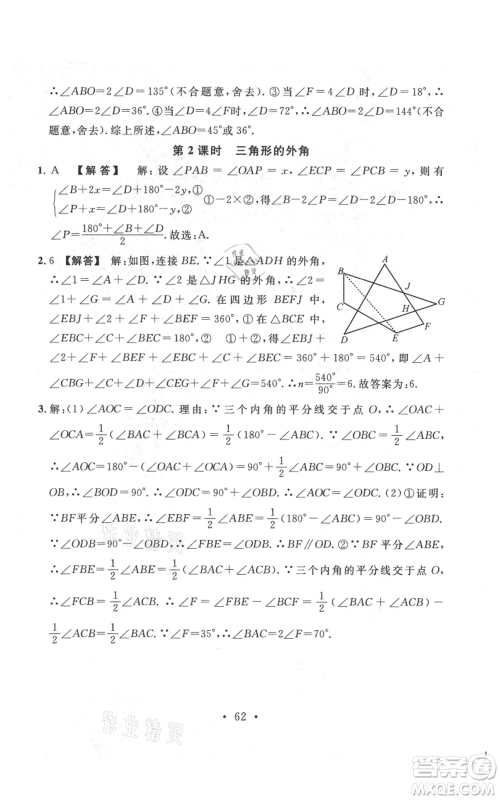 ∴∠ABO=2∠D=135°(不合题意,舍去).③当∠F=4∠D 时,∠D=18°,
∴∠ABO=2∠D=36°.④当∠D=4∠F时,∠D=72°,∴∠ABO=2∠D=144°(不合
题意,舍去).综上所述,∠ABO=45°或36°.
第 2 课时 三角形的外角
1. A 【解答】 解:设∠PAB=∠OAP=x,∠ECP=∠PCF=y,则有
{∠B+2x=∠D+180°-2y①, ∠B+x=∠P+180°-y②, ①-②×2得∠B-2∠P=∠D-180°,∴
∠P=(180°+∠B+∠D)/2.故选:A.
2. 6 【解答】 解:如图,连接 BE.∵∠1是△ADH的外角,
∴∠1=∠A+∠D.∵∠2是△JHG 的外角,∴∠2=
∠1+∠G,∴∠2=∠A+∠D+∠G.在四边形 BEFJ 中,
∠EBJ+∠BJF+∠F+∠BEF=360°,在△BCE 中,
∠EBC+∠C+∠BEC=180°,∴∠EBJ+∠C+∠CEF
+∠2+∠F=360°+180°=540°,即∠A+∠CBG
+∠C+∠D+∠CEG+∠F+∠G=540°.∴n=540°/90°=6.故答案为:6.
A
B
J
G
C
F
D
E
3. 解:(1)∠AOC=∠ODC.理由:∵三个内角的平分线交于点 O,∴∠OAC+
∠OCA=1/2(∠BAC+∠BCA)=1/2(180°-∠ABC).∵∠OBC=1/2∠ABC,
∴∠AOC=180°-(∠OAC+∠OCA)=90°+1/2∠ABC=90°+∠OBC.∵OD⊥
OB,∴∠BOD=90°.∴∠ODC=90°+∠OBD.∴∠AOC=∠ODC.(2)①证明:
∵BF平分∠ABE,∴∠EBF=1/2∠ABE=1/2(180°-∠ABC)=90°-∠OBD.
∵∠ODB=90°-∠OBD,∴∠EBF=∠ODB.∴BF∥OD.②∵BF平分∠ABE,
∴∠EBF=1/2∠ABE=1/2(∠BAC+∠ACB).∵三个内角的平分线交于点 O,
∴∠FCB=1/2∠ACB.∵∠F=∠EBF-∠BCF=1/2(∠BAC+∠ACB)-
1/2∠ACB=1/2∠BAC.∵∠F=35°,∴∠BAC=2∠F=70°.
· 62 ·
作业精灵
作业精灵